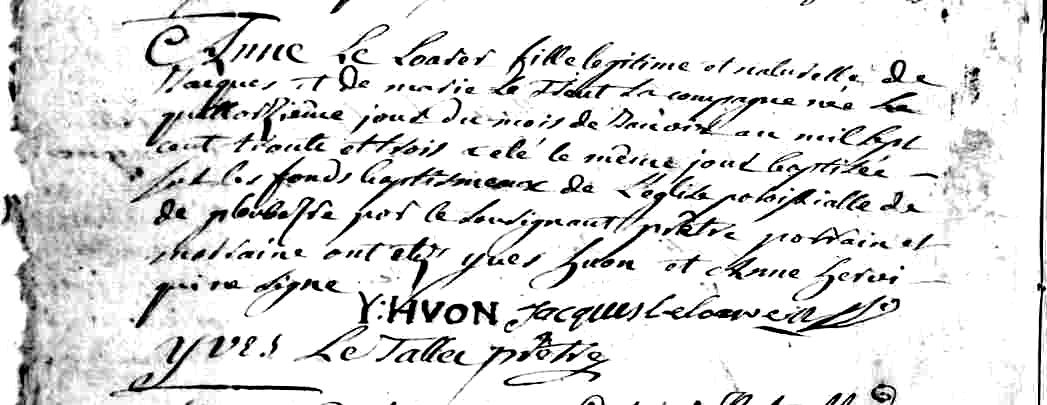 Anne Le Loarer fille legitime et naturelle de
Jacques et de marie Le la compagne née le
quattorzieme jour du mois de Janvier an mil sept
cent trante et trois a eté le même jour baptisée
sur les fonds baptismeaux de L'eglise paroissialle de
de ploubesre par le Sousignant prêtre parrain et
marraine ont etés yves huon et Anne hervi
qui ne signe
Y: HVON Jacques le loarer
YVES Le Tallec prêtre